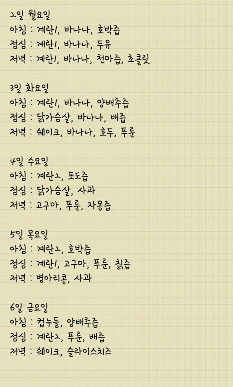 2일 월요일
아침 : 계란1, 바나나, 호박즙
점심 : 계란1, 바나나, 두유
저녁 : 계란1, 바나나, 천마즙, 초콜릿
3일 화요일
아침 : 계란1, 바나나, 양배추즙
점심 : 닭가슴살, 바나나, 배즙
저녁 : 쉐이크, 바나나, 호두, 푸룬
4일 수요일
아침 : 계란2, 포도즙
점심 : 닭가슴살, 사과
저녁 : 고구마, 푸룬, 자몽즙
5일 목요일
아침 : 계란2, 호박즙
점심 : 계란1, 고구마, 푸룬, 칡즙
저녁 : 병아리콩, 사과
6일 금요일
아침 : 컵누들, 양배추즙
점심 : 계란2, 푸룬, 배즙
저녁 : 쉐이크, 슬라이스치즈